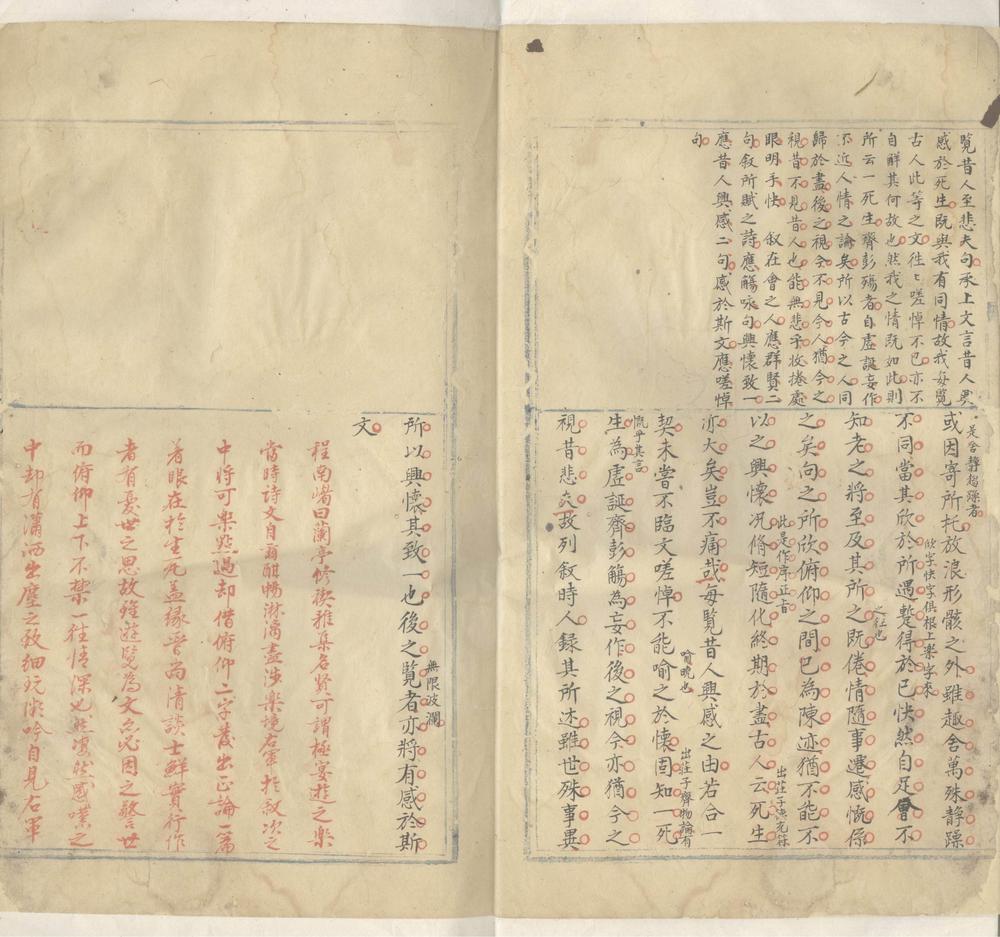 覧昔人至悲夫句承上文言昔人異
感於死生既與我有同情故我每覧
古人此等之文徃〻嗟悼不已亦不
自解其何故也然我之情既如此則
所云一死生齊彭殤者自虚誕妄作
不近人情之論矣所以古今之人同
歸於盡後之視今不見今人猶今之
視昔不見昔人也能無悲乎收捲處
眼明手快 叙在會之人應群賢二
句叙所賦之詩應觴咏句興懷致一
應昔人興感二句感於斯文應嗟悼
句
是舍静趋躁者
或因寄所托放浪形骸之外雖趣舍萬殊静躁
欣字快字俱根上樂字來
不同當其欣於所遇蹔得於已快然自足會不
之徃也
知老之將至及其所之既倦情隨事遷感慨係
之矣向之所欣俯仰之間已為陳迹猶不能不
此是作序正旨
出莊子德充符
以之興懷况脩短隨化終期於盡古人云死生
亦大矣豈不痛哉每覧昔人興感之由若合一
喻曉也
出莊子齊物論有
契未嘗不臨文嗟悼不能喻之於懷固知一死
慨乎其言
生為虚誕齊彭觴為妄作後之視今亦猶今之
視昔悲夫故列叙時人録其所述雖世殊事異
無限波瀾
所以興懷其致一也後之覧者亦將有感於斯
文
程南曰蘭亭修禊雅集名賢可謂極宴遊之樂
當時詩文自爾酣暢淋漓盡涉樂境右軍於叙次之
中將可樂㸃過却借俯仰二字發出正論一篇
着眼在於生死盖緣晋尚清談士鮮實行作
者有憂世之思故雖遊覧為文亦必因之警世
而俯仰上下不禁一徃情深也然慨然感嘆之
中却有瀟洒出塵之致細玩微吟自見右軍